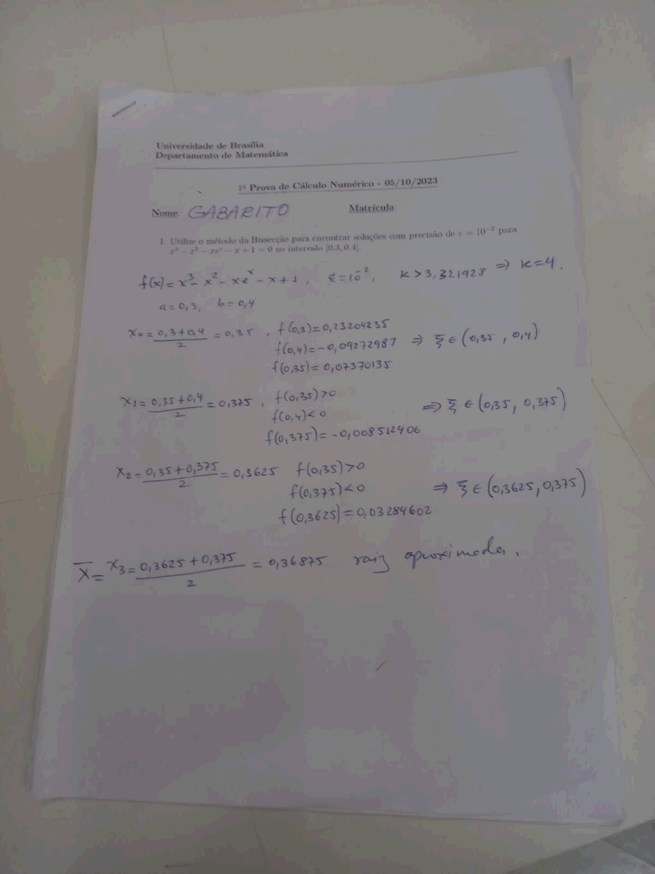 Universidade de Brasília
Departamento de Matemática
1ª Prova de Cálculo Numérico - 05/10/2023
Nome GABARITO Matrícula:
1. Utilize o método da Bissecção para encontrar soluções com precisão de ε = 10⁻² para
x³ - x² - xeˣ - x + 1 = 0 no intervalo [0.3, 0.4].
f(x) = x³ - x² - xeˣ - x + 1, ε = 10⁻², K > 3,321928 ⇒ K = 4.
a = 0,3, b = 0,4
x₀ = (0,3+0,4)/2 = 0,35. f(0,3) = 0,23204235
f(0,4) = -0,09272987 ⇒ ξ ∈ (0,35, 0,4)
f(0,35) = 0,07370135
x₁ = (0,35+0,4)/2 = 0,375. f(0,35) > 0
f(0,4) < 0 ⇒ ξ ∈ (0,35, 0,375)
f(0,375) = -0,008512406
x₂ = (0,35+0,375)/2 = 0,3625 f(0,35) > 0
f(0,375) < 0 ⇒ ξ ∈ (0,3625, 0,375)
f(0,3625) = 0,03284602
x̄ = x₃ = (0,3625+0,375)/2 = 0,36875 raiz aproximada.